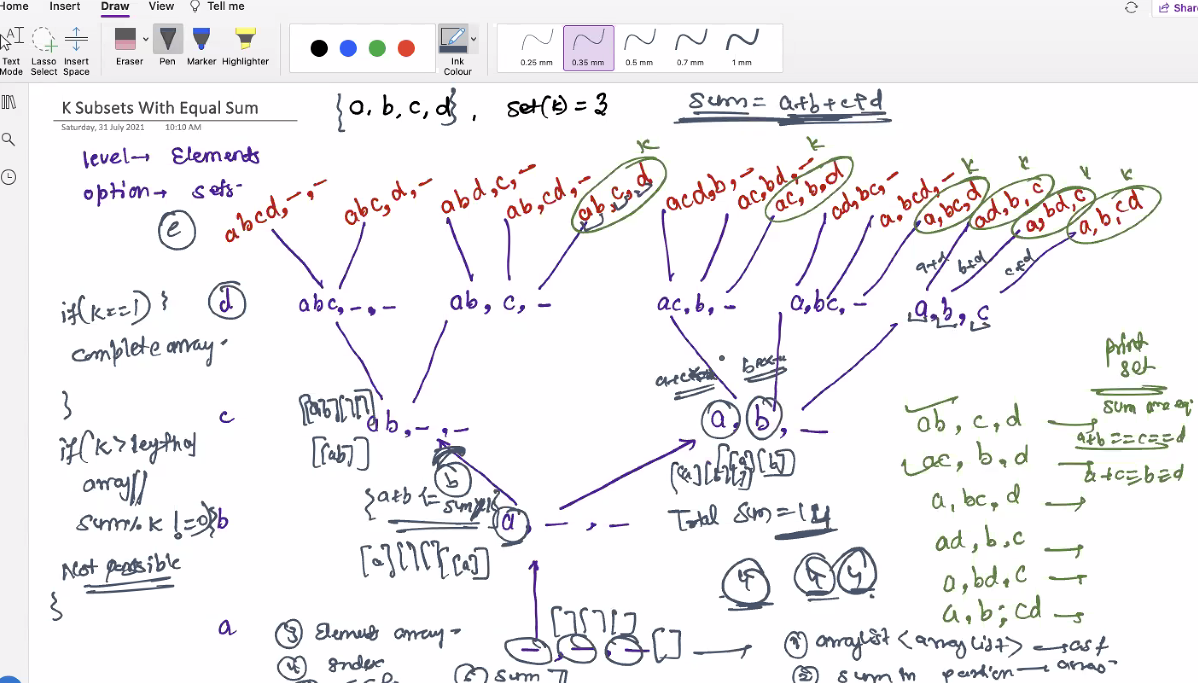 Home Insert Draw View Tell me
Share
Text Mode
Lasso Select
Insert Space
Eraser
Pen
Marker
Highlighter
Ink Colour
0.25 mm
0.35 mm
0.5 mm
0.7 mm
1 mm
K Subsets With Equal Sum
Saturday, 31 July 2021 10:10 AM
{a, b, c, d}, set(k) = 3
sum = a+b+c+d
level → Elements
option → sets
abcd, -, -
abc, d, -
abd, c, -
ab, cd, -
ab, c, d
k
acd, b, -
ac, bd, -
ac, b, d
k
ad, bc, -
a, bcd, -
a, bc, d
k
ad, b, c
k
a, bd, c
k
a, b, cd
k
e
a+d
b+d
c+d
d
abc, -, -
ab, c, -
ac, b, -
a, bc, -
a, b, c
if(k==1) {
complete array
}
c
ab, -, -
[[ab][][]
[[ab]]
a, b, -
if(k > length of
array||
sum%k != 0){
Not possible
}
b
b
a, -, -
Total Sum = 14
4
4
4
print
set
sum are eq
a+b==c==d
a+c==b==d
ab, c, d
ac, b, d
a, bc, d
ad, b, c
a, bd, c
a, b, cd
a
[][][]
-, -, -
[]
3 Element array
4 index
5 sum
1 arrayList <arrayList>
2 sum in